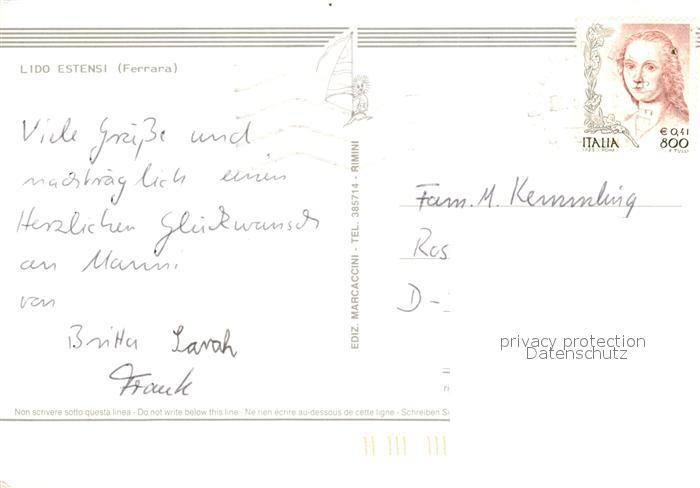 LIDO ESTENSI (Ferrara)
Viele Grüße und
nachträglich einen
Herzlichen Glückwunsch
an Manni
von
Britta Sarah
Frank
Non scrivere sotto questa linea - Do not write below this line - Ne rien écrire au-dessous de cette ligne - Schreiben S
EDIZ. MARCACCINI - TEL. 385714 - RIMINI
ITALIA
€ 0,41
800
Fam. M. Kemmling
Ros
D-
privacy protection
Datenschutz